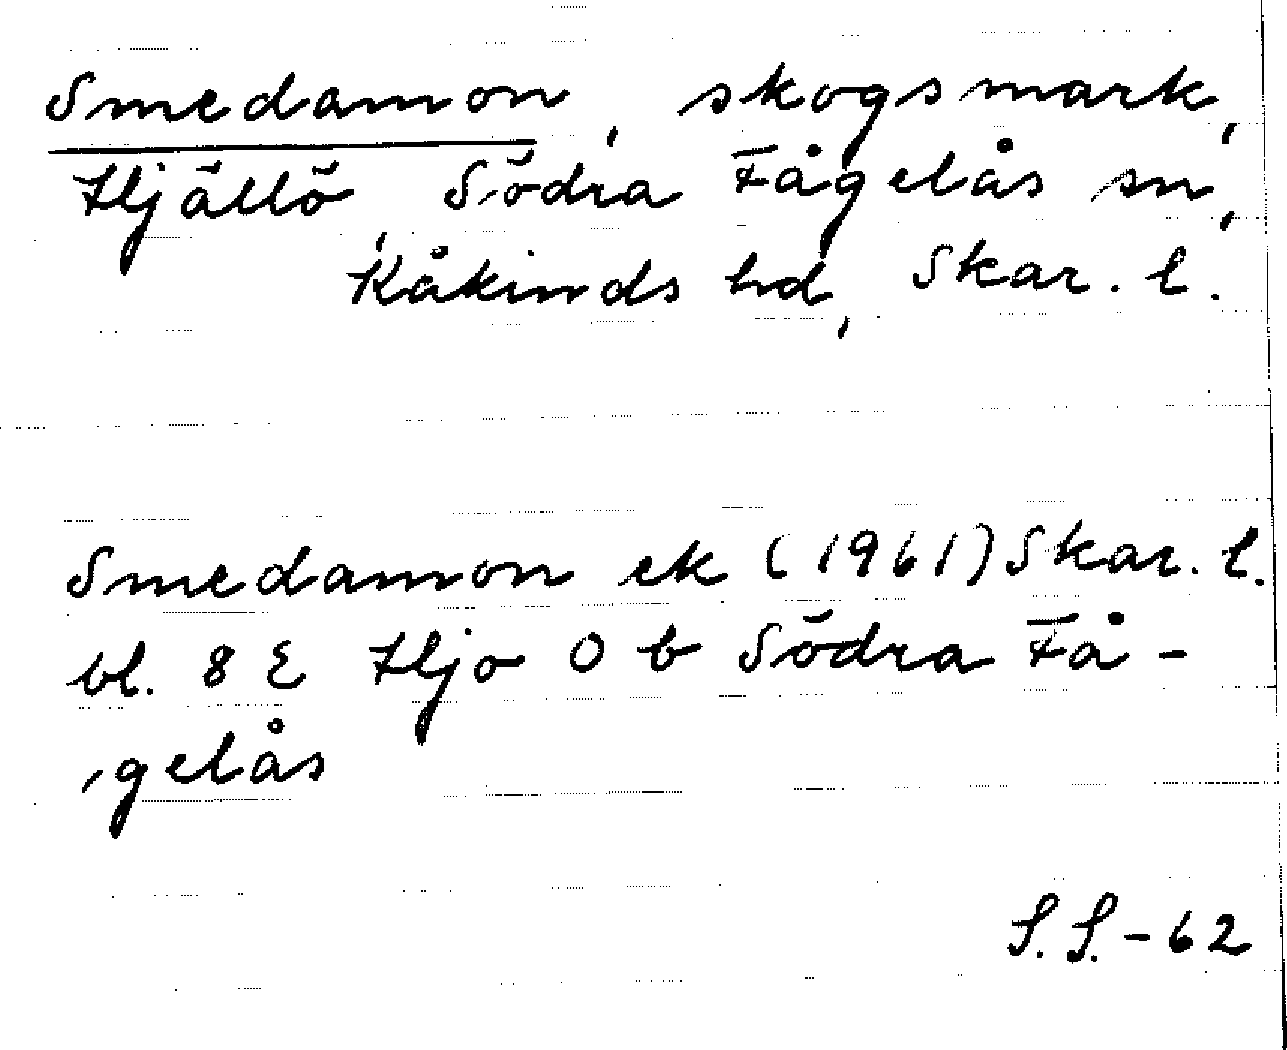 Smedamon, skogsmark,
Hjällö, Södra Fågelås sn,
Kåkinds hd, Skar. l.
Smedamon ek (1961) Skar. l.
bl. 8 E Hjo 0 b Södra Få-
gelås
S.S.-62